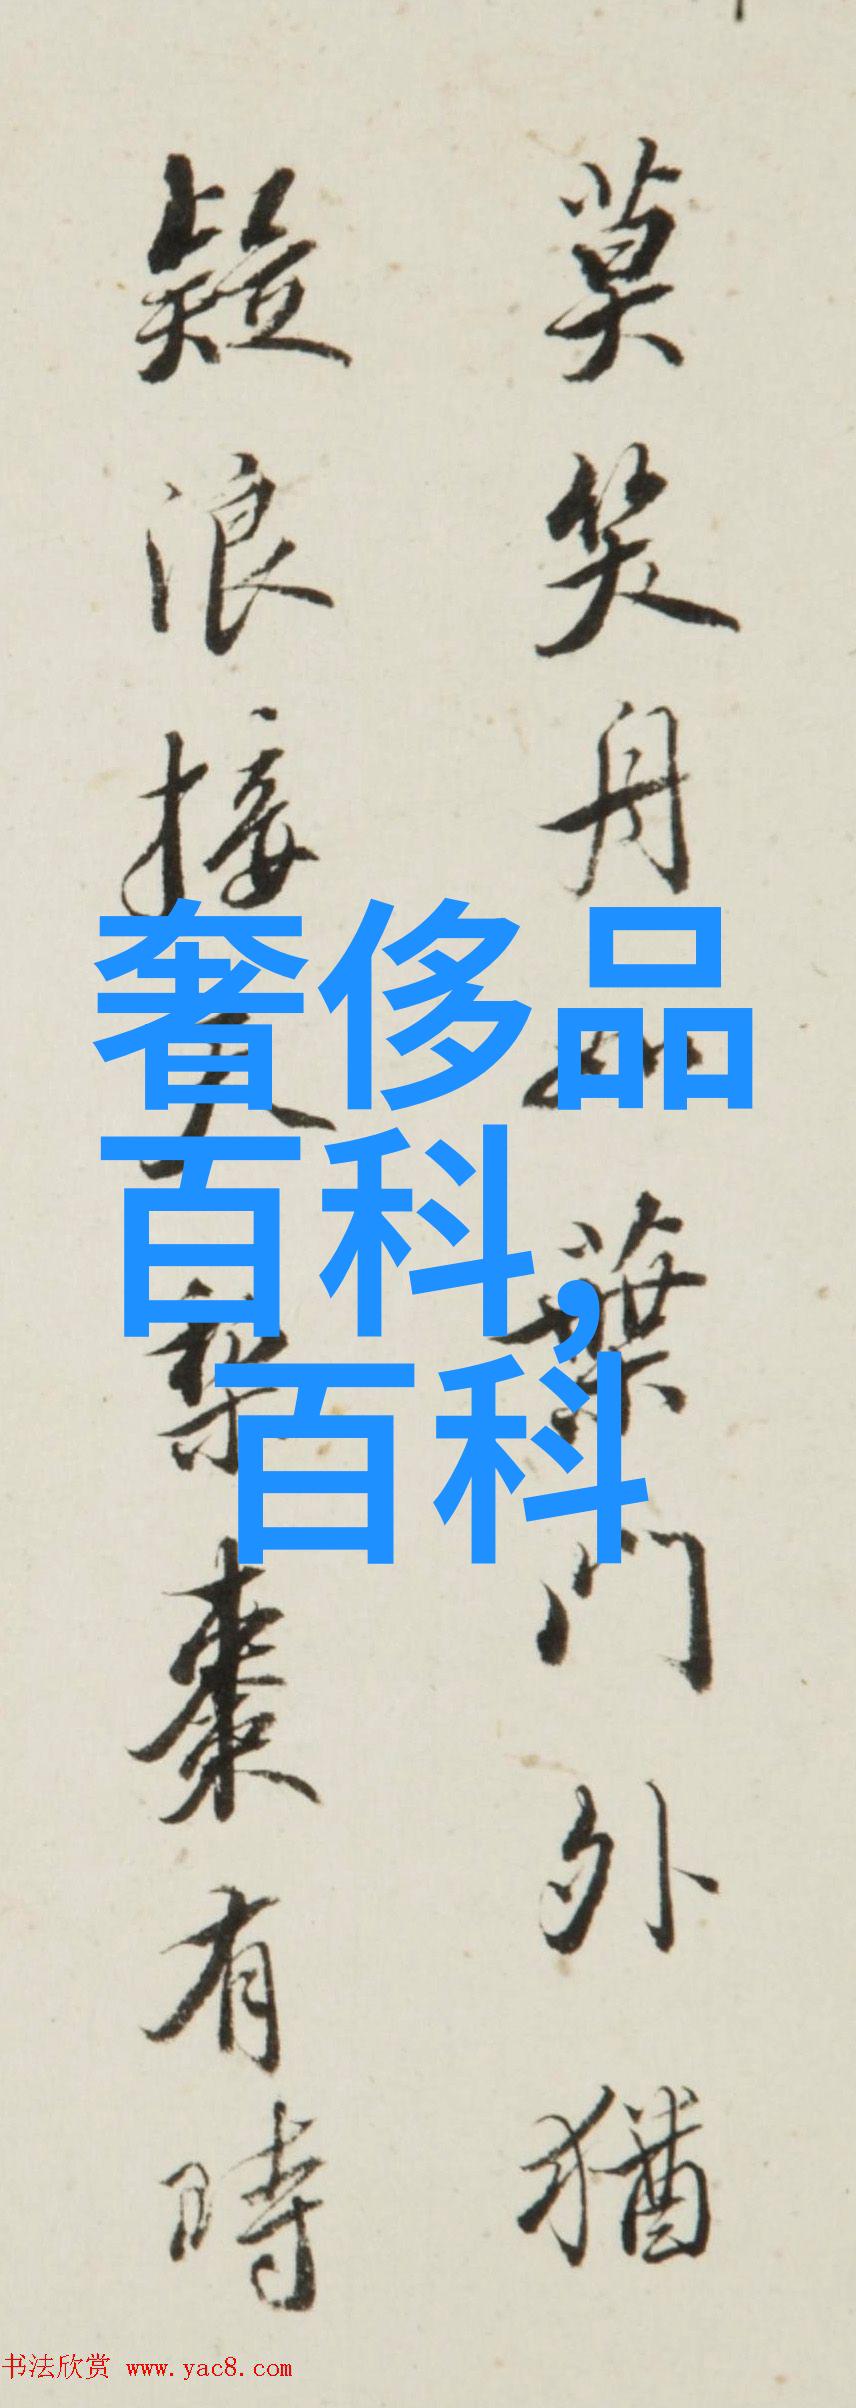 莫笑舟如葉門外猶
疑浪接天梨棗有時
奢侈品
百科,
百科
书法欣赏 www.yac8.com